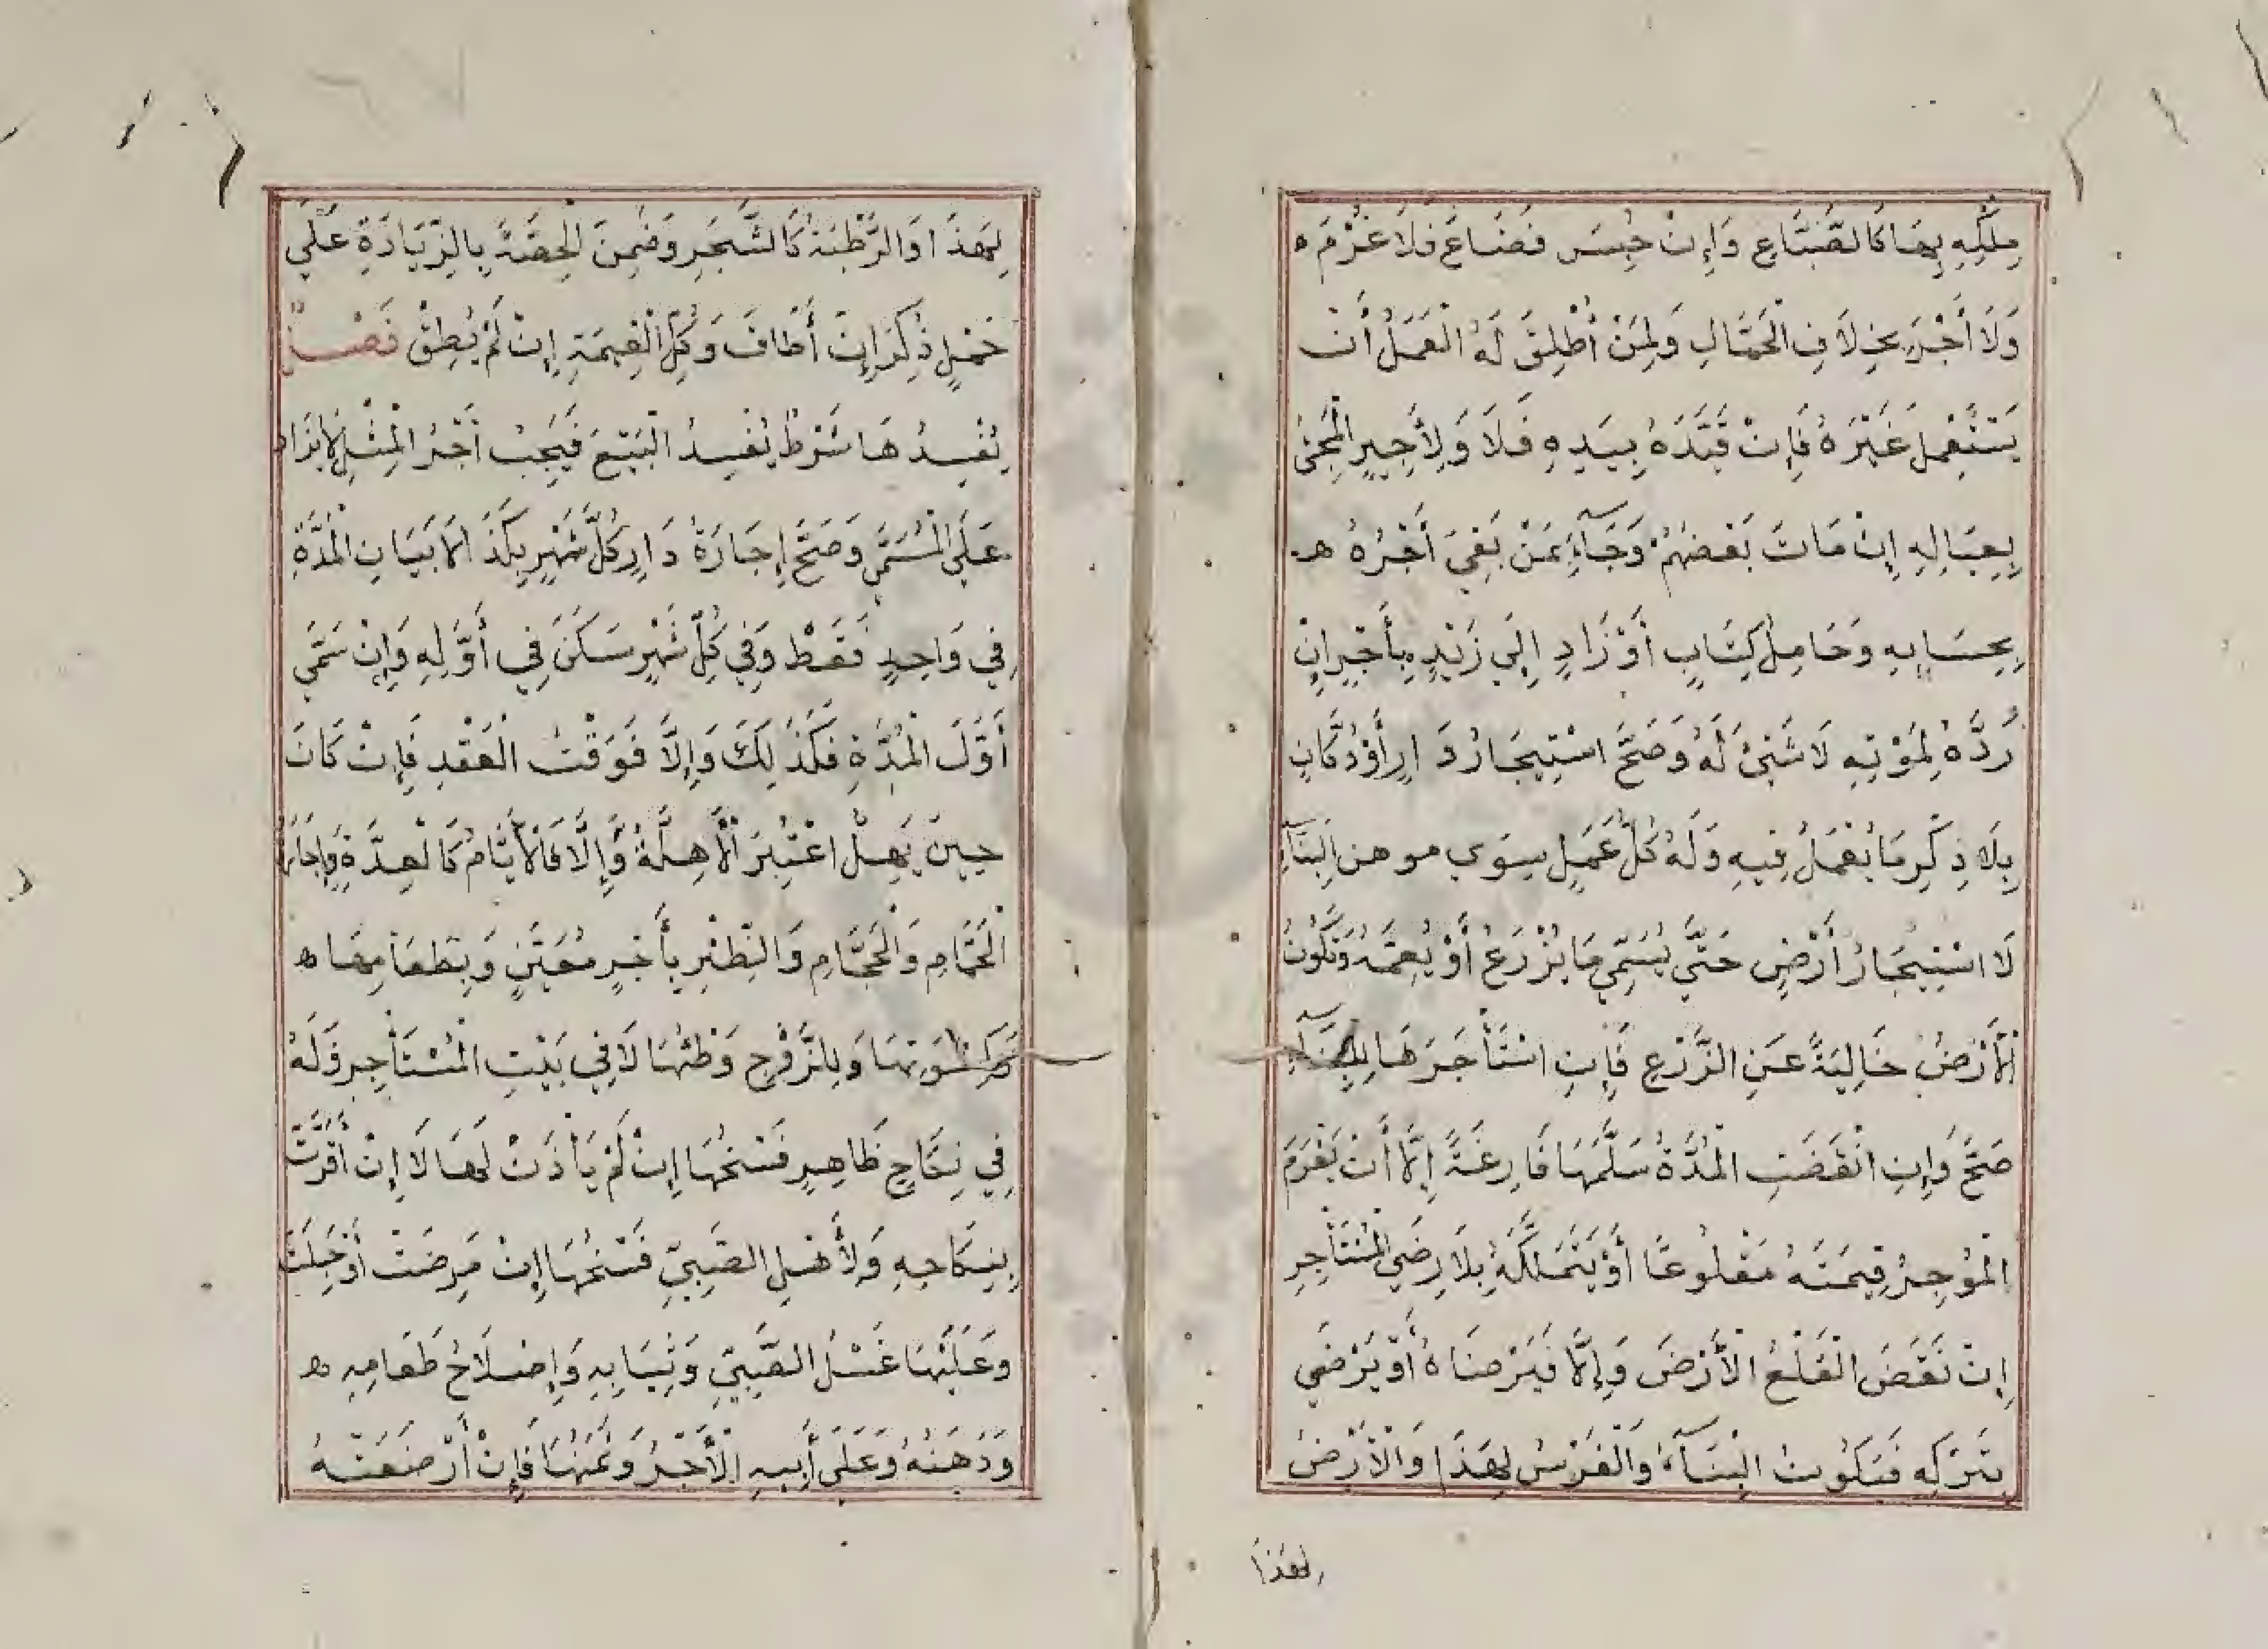 مِلْكِهِ بِهَا كَالصَّبَّاغِ وَإِنْ حُبِسَ فَضَاعَ فَلَا غُرْمَ ه
وَلَا أَجْرَ بِخِلَافِ الْحَمَّالِ وَلِمَنْ أُطْلِقَ لَهُ الْعَمَلُ أَنْ
يَسْتَعْمِلَ غَيْرَهُ فَإِنْ قَيَّدَهُ بِيَدِهِ فَلَا وَلِأَجِيرِ الْمَجِئِ
بِعِيَالِهِ إِنْ مَاتَ بَعْضُهُمْ وَجَاءَ بِمَنْ بَقِيَ أَجْرُهُ هـ
بِحِسَابِهِ وَحَامِلُ كِتَابٍ أَوْ زَادٍ إِلَى زَيْدٍ بِأَجْرٍ إِنْ
رَدَّهُ لِمَوْتِهِ لَا شَيْئَ لَهُ وَصَحَّ اسْتِيجَارُ دَارٍ أَوْ دُكَّانٍ
بِلَا ذِكْرِ مَا يُعْمَلُ فِيهِ وَلَهُ كُلُّ عَمَلٍ سِوَى موهن الْبِنَاءِ
لَا اسْتِيجَارُ أَرْضٍ حَتَّى يُسَمِّيَ مَا يُزْرَعُ أَوْ يُعَمِّمَهُ وَتَكُونُ
الْأَرْضُ خَالِيَةً عَنِ الزَّرْعِ فَإِنِ اسْتَأْجَرَهَا لِلْبِنَاءِ
صَحَّ وَإِنِ انْقَضَتِ الْمُدَّةُ سَلَّمَهَا فَارِغَةً إِلَّا أَنْ يَغْرَمَ
الْمُؤَجِّرُ قِيمَتَهُ مَقْلُوعًا أَوْ يَتَمَلَّكَهُ بِلَا رِضَى الْمُسْتَأْجِرِ
إِنْ نَقَضَ الْقَلْعُ الْأَرْضَ وَإِلَّا فَبِرِضَاهُ أَوْ يَرْضَى
بِتَرْكِهِ فَيَكُونُ الْبِنَاءُ وَالْغَرْسُ لِهَذَا وَالْأَرْضُ
لهذا
لِهَذَا وَالرَّطْبَةُ كَالشَّجَرِ وَضَمِنَ الْحِصَّةَ بِالزِّيَادَةِ عَلَى
حَمْلٍ ذُكِرَ إِنْ أَطَاقَ وَكُلَّ الْقِيمَةِ إِنْ لَمْ يُطِقْ فَصْلٌ
يُفْسِدُهَا شَرْطٌ يُفْسِدُ الْبَيْعَ فَيَجِبُ أَجْرُ الْمِثْلِ لَا يُزَادُ
عَلَى الْمُسَمَّى وَصَحَّ إِجَارَةُ دَارٍ كُلَّ شَهْرٍ بِكَذَا لَا بَيَانِ الْمُدَّةِ
فِي وَاحِدٍ فَقَطْ وَفِي كُلِّ شَهْرٍ سَكَنَ فِي أَوَّلِهِ وَإِنْ سَمَّى
أَوَّلَ الْمُدَّةِ فَكَذَلِكَ وَإِلَّا فَوَقْتُ الْعَقْدِ فَإِنْ كَانَ
حِينَ يُهَلُّ اعْتُبِرَ الْأَهِلَّةُ وَإِلَّا فَالْأَيَّامُ كَالْعِدَّةِ وَإِجَارَةُ
الْحَمَّامِ وَالْحَجَّامِ وَالظِّئْرِ بِأَجْرٍ مُعَيَّنٍ وَبِطَعَامِهَا ه
وَكِسْوَتِهَا وَلِلزَّوْجِ وَطْئُهَا لَا فِي بَيْتِ الْمُسْتَأْجِرِ وَلَهُ
فِي نِكَاحٍ ظَاهِرٍ فَسْخُهَا إِنْ لَمْ يَأْذَنْ لَهَا لَا إِنْ أَقَرَّتْ
بِنِكَاحِهِ وَلِأَهْلِ الصَّبِيِّ فَسْخُهَا إِنْ مَرِضَتْ أَوْ حَبِلَتْ
وَعَلَيْهَا غَسْلُ الصَّبِيِّ وَثِيَابِهِ وَإِصْلَاحُ طَعَامِهِ ه
وَدَهْنُهُ وَعَلَى أَبِيهِ الْأَجْرُ وَثَمَنُهَا فَإِنْ أَرْضَعَتْهُ